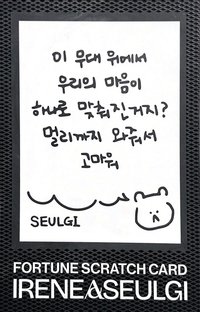 이 무대 위에서
우리의 마음이
하나로 맞춰진거지?
멀리까지 와줘서
고마워
SEULGI
FORTUNE SCRATCH CARD
IRENE&SEULGI